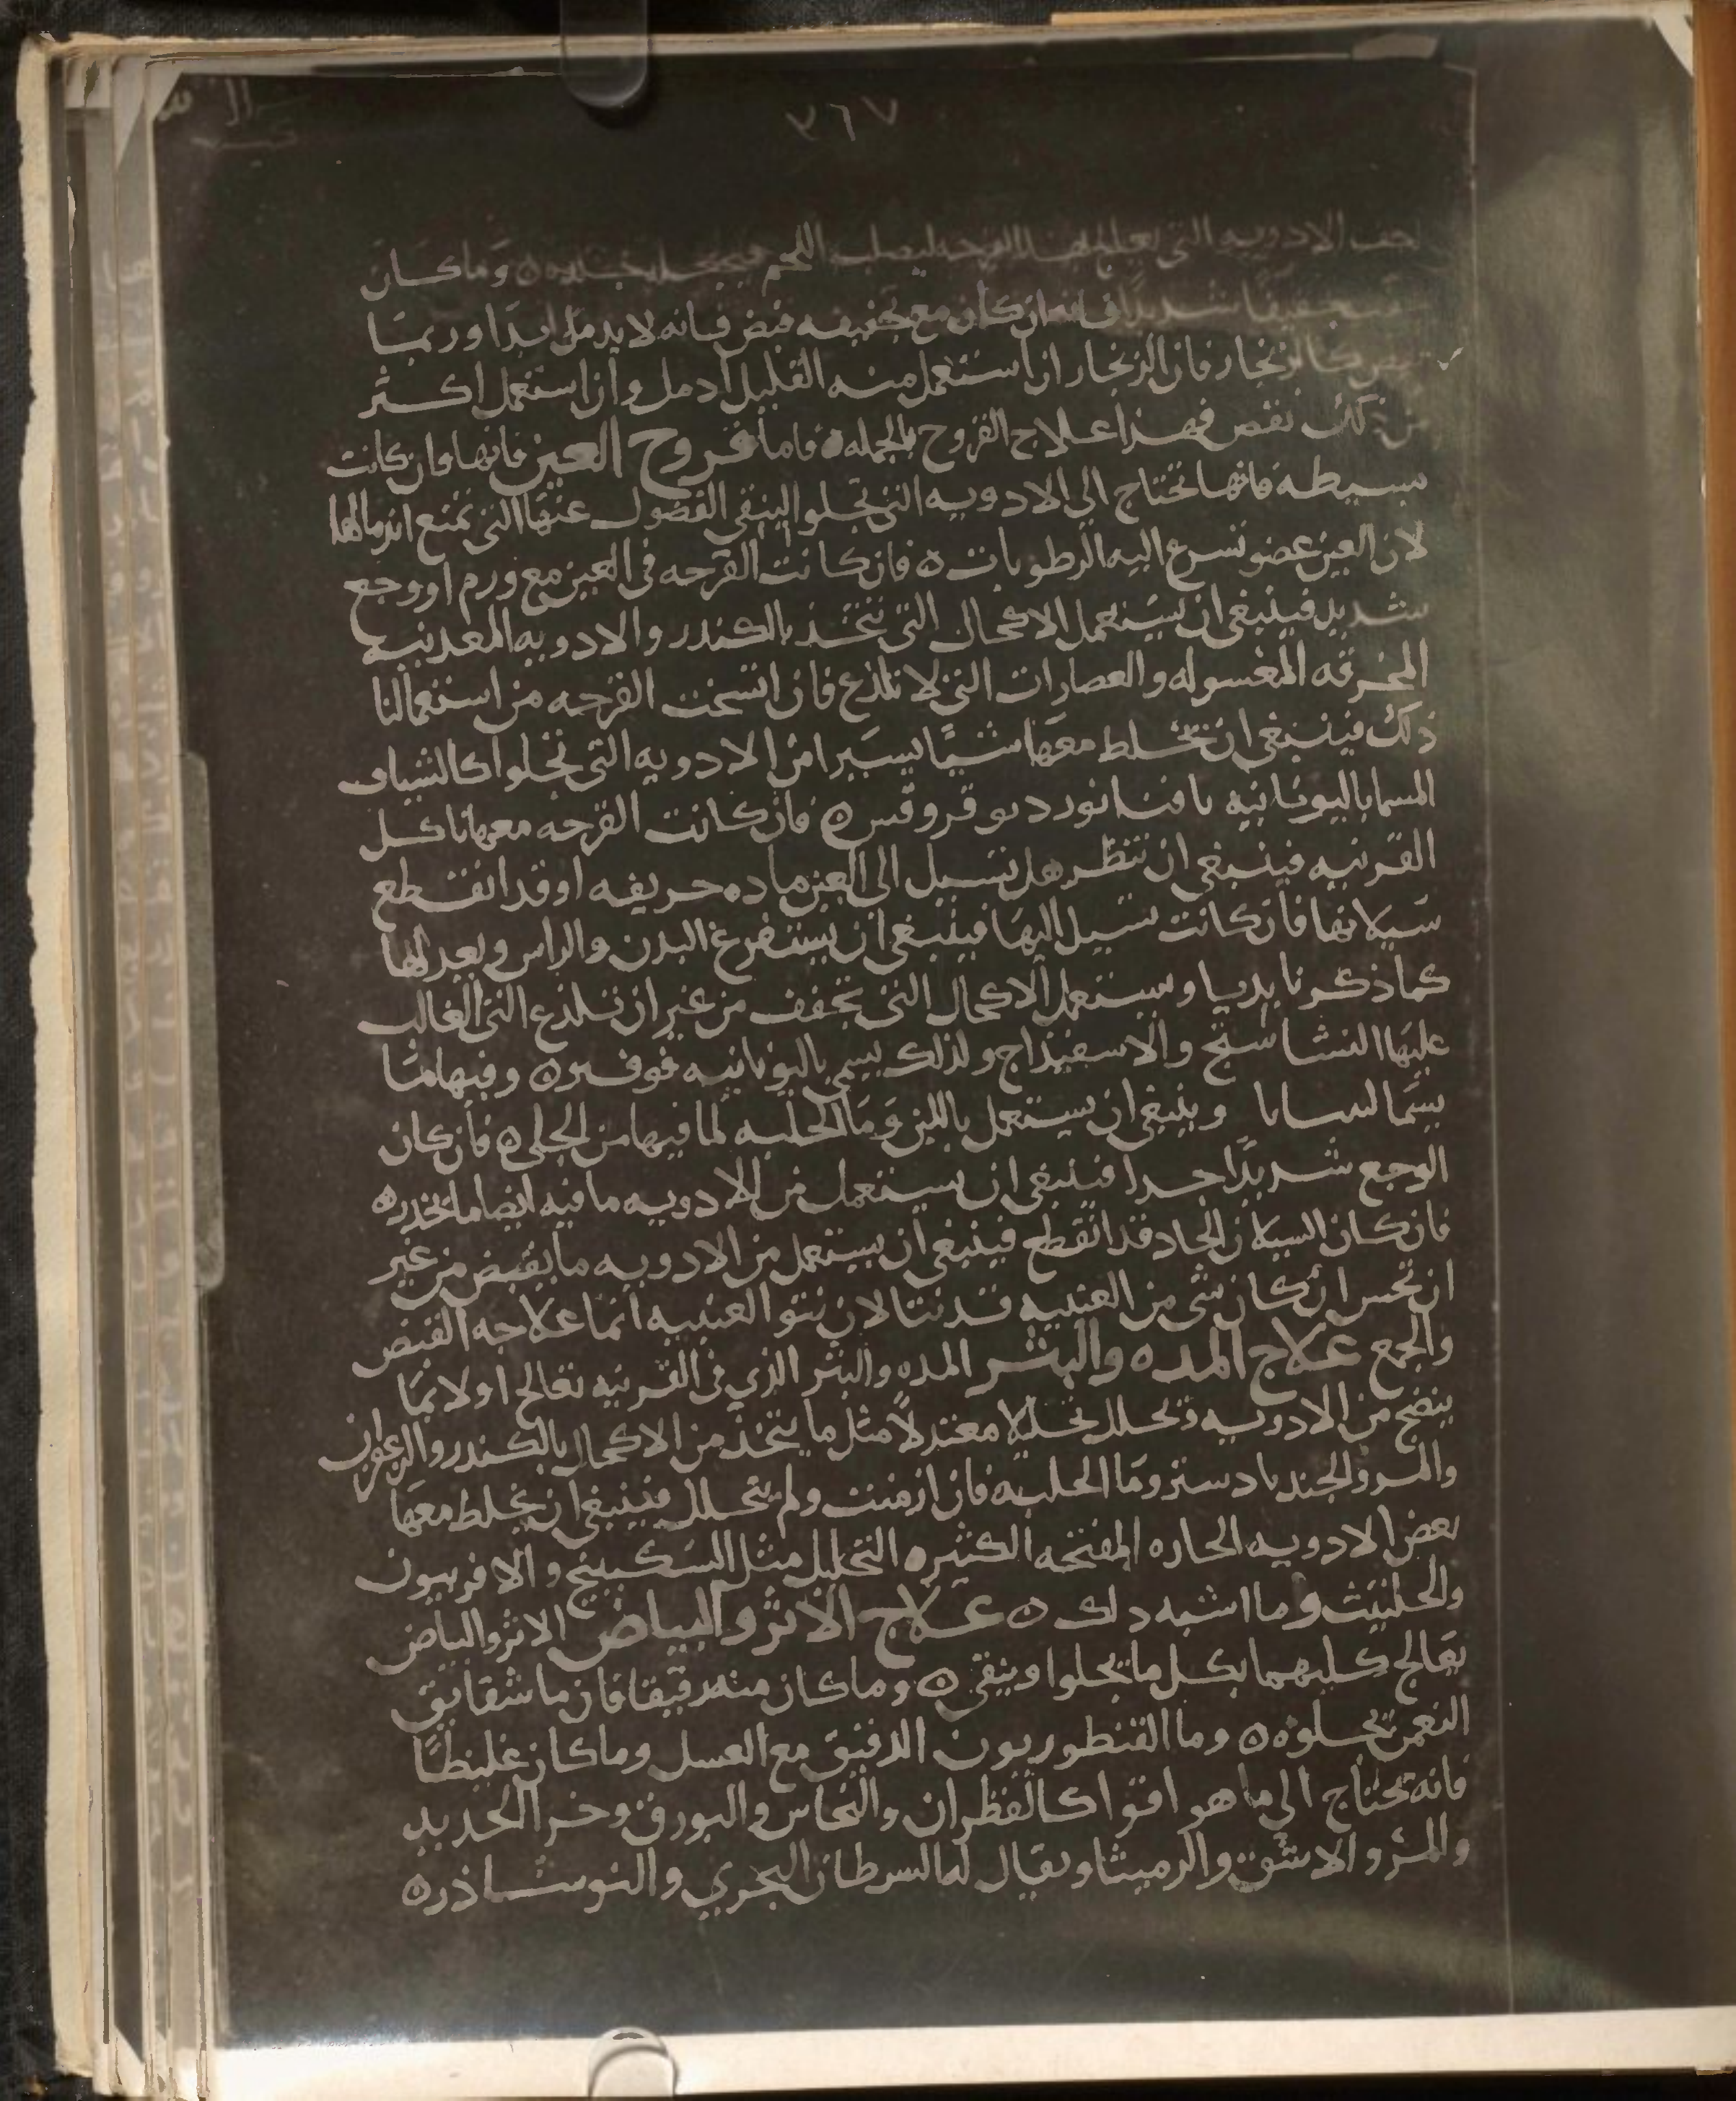 ٣٦٧
الادويه التي القرحه اللحم وما كان
تجفيفًا شديدًا فانه ان كان مع تجفيفه قبض فانه لا يدمل ابدًا وربمتا
كالزنجار فان الزنجار ان استعمل منه القليل ادمل وان استعمل اكثر
من ذلك نقص فهذا علاج القروح بالجمله ه فاما قروح العين فانها وان كانت
بسيطه فانها تحتاج الى الادويه التي تجلوا لينقى الفضول عنها التي تمنع اندمالها
لان العين عضو تسرع اليه الرطوبات ه فان كانت القرحه في العين مع ورم او وجع
شديد فينبغي ان يستعمل الاكحال التي تتخذ بالكندر والادويه المعدنيه
المحرقه المغسوله والعصارات التي لا تلذع فان اتسخت القرحه من استعمالنا
ذلك فينبغي ان تخلط معها شيًا يسيرا من الادويه التي تجلوا كالشياف
المسما باليونانيه ه فان كانت القرحه معها تاكل
القرنيه فينبغي ان تنظر هل تسيل الى العين ماده حريفه او قد انقطع
سيلانها فان كانت تسيل اليها فينبغي ان يستفرغ البدن والراس ويعدلها
كما ذكرنا بديا ويستعمل الاكحال التي تجفف من غير ان تلذع التي الغالب
عليها النشاستج والاسفيذاج ولذلك يسمى باليونانيه ه وفيها مثا
يسما وينبغي ان يستعمل باللبن وما الحلبه لما فيها من الجلى ه فان كان
الوجع شديدًا جدا فينبغي ان يستعمل من الادويه ما فيه ايضا ما يخدر ه
فان كان السيلان الحاد قد انقطع فينبغي ان يستعمل من الادويه ما يقبض من غير
ان تحس ان كان شي من العنبيه قد نتا لان نتو العنبيه انما علاجه القبض
والجمع علاج المده والبثر المده والبثر الذي في القرنيه تعالج اولا بما
ينضج من الادويه وتحلل تحليلا معتدلًا مثل ما يتخذ من الاكحال بالكندر والزعفران
والمر والجندبادستر وما الحلبه فان ازمنت ولم تتحلل فينبغي ان يخلط معها
بعض الادويه الحاره المفتحه الكثيره التحليل مثل السكبينج والافربيون
والحلتيت وما اشبه ذلك ه علاج الاثر والبياض الاثر والبياض
تعالج كليهما بكل ما يجلوا وينقي ه وما كان منه رقيقا فان ما شقايق
النعمن تجلوه ه وما القنطوريون الدقيق مع العسل وما كان غليظًا
فانه تحتاج الى ما هو اقوا كالقطران والنحاس والبورق وخرا الحديد
والمر والاشق ويقال لها السرطان البحري والنوشاذر ه